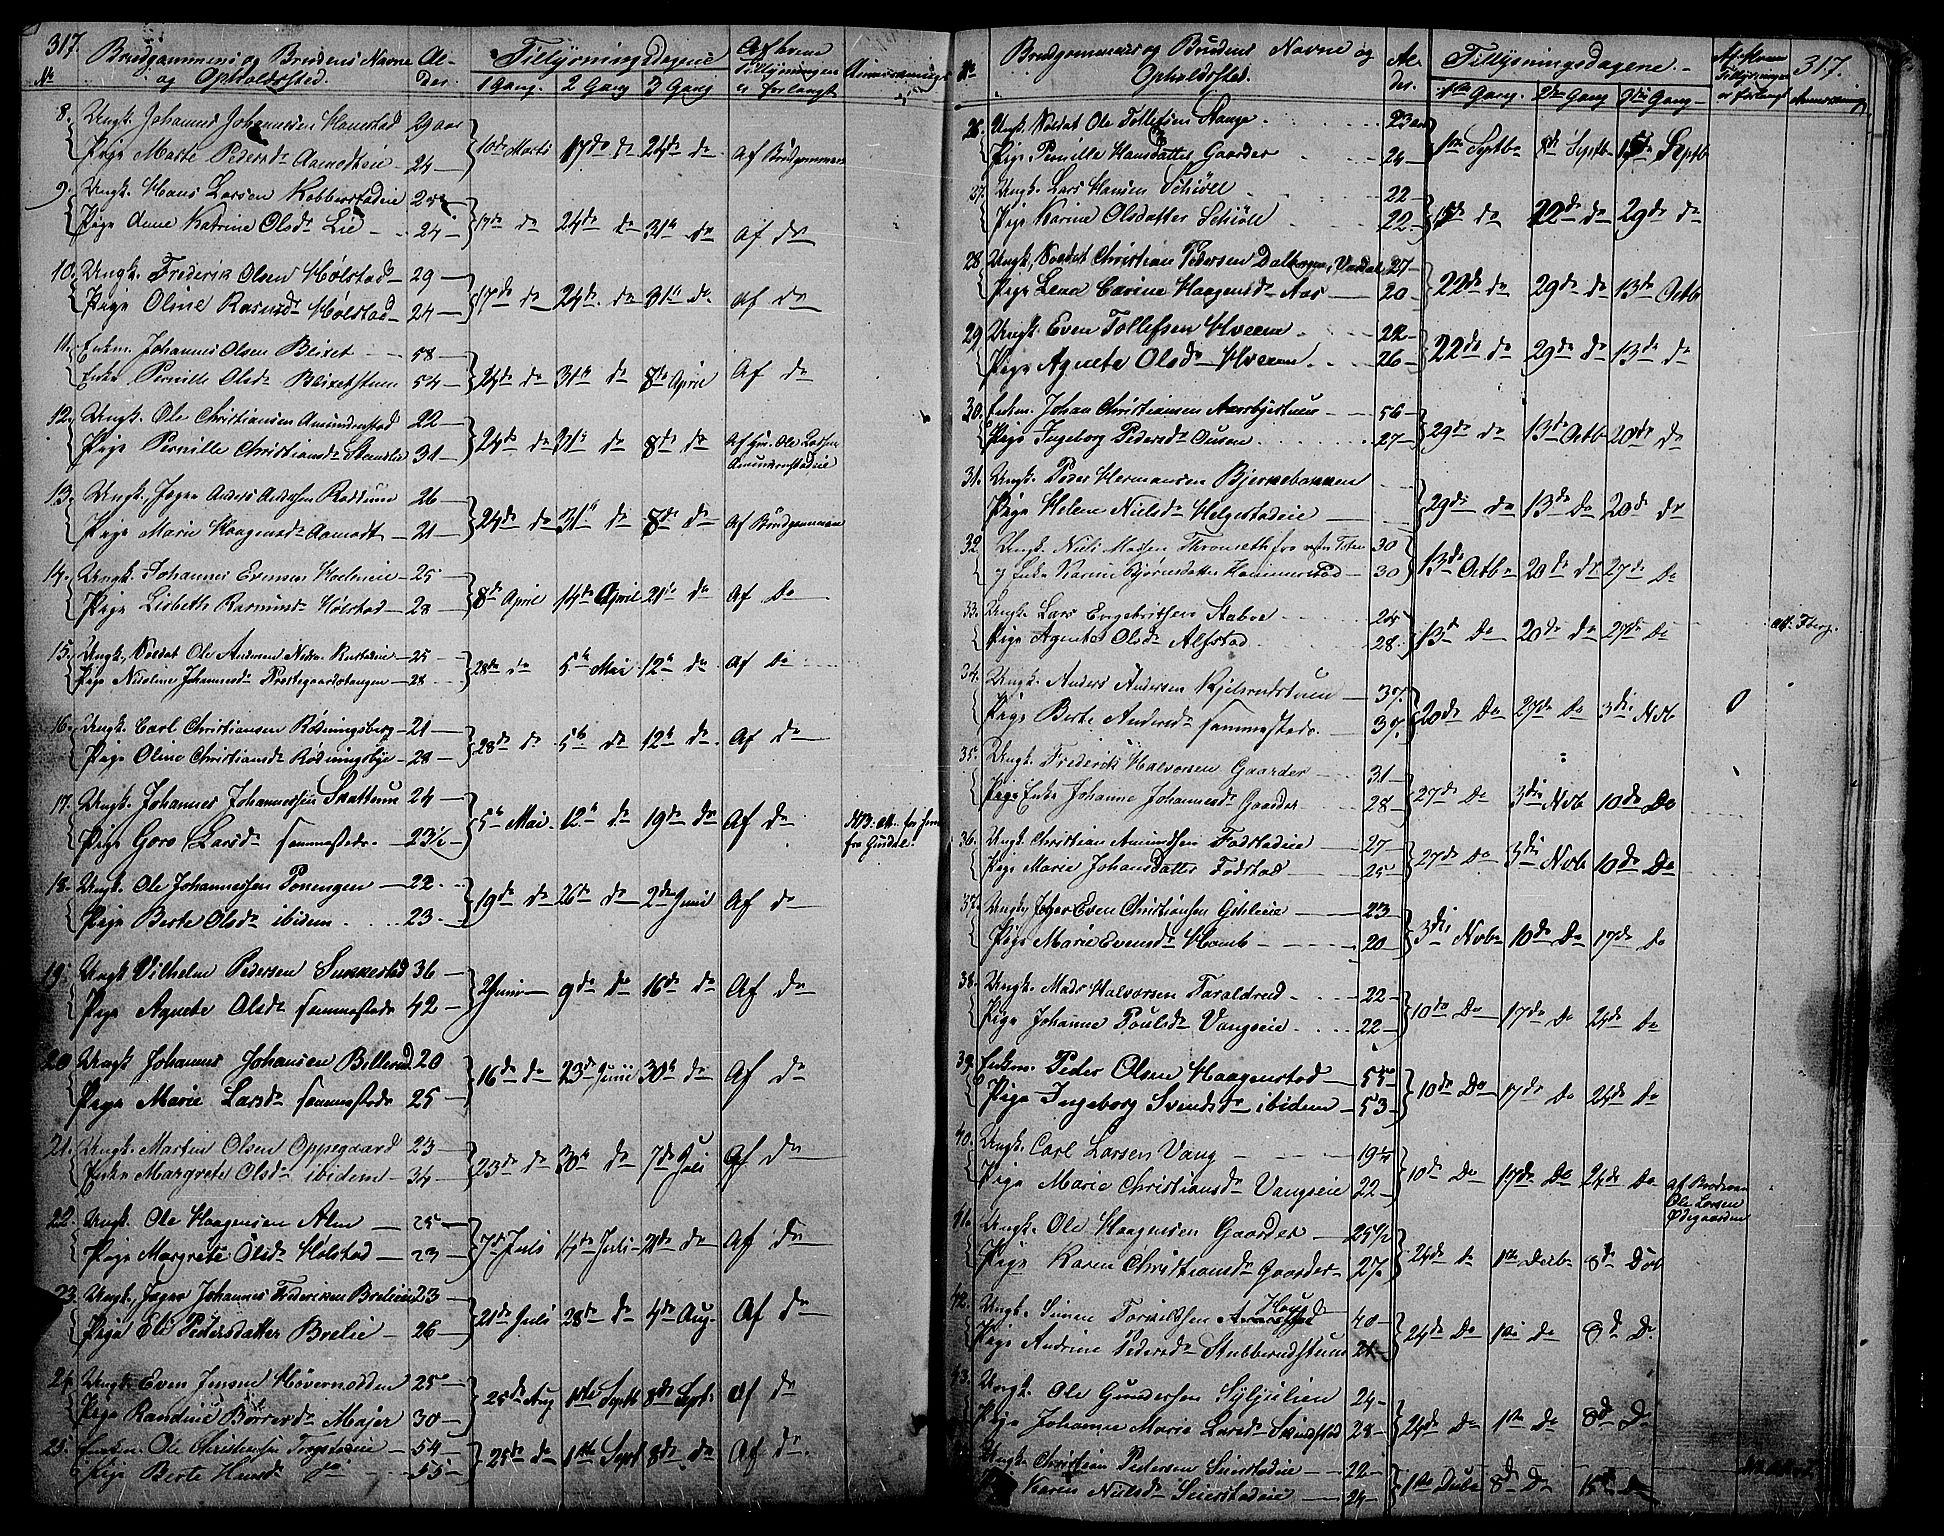 317.
No
Brudgommens og Brudens Navne
og Opholdssted.
Al-
der.
Tillysnings Dagene
1 Gang. 2 Gang 3 Gang
Af hvem
Tillysningen
er forlangt
Anmærkninger
8. Ungk. Johannes Johannessen Honestad 29 aar
Pige Marte Pedersdr Aamodteie 24
10de Marts 17de do 24de do Af Brudgommen
9. Ungk. Hans Larsen Kobberstadeie
Pige Anne Katrine Olsdr Lie 24
17de do 24de do 31te do Af do
10. Ungk. Frederik Olsen Hølstad 29
Pige Oline Rasmsdr Hølstad 24
17de do 24de do 31te do Af do
11. Enkm. Johannes Olsen Blixet 58
Enke Pernille Olsdr Blixetstuen 54
24de do 31te do 8de April Af do
12. Ungk. Ole Christiansen Amundrustad 22
Pige Pernille Christiansdr 31
24de do 31te do 8de do Af Gr. Ole Larsen
Amundrustadeie
13. Ungk. Jæger Anders Andersen 26
Pige Marie Haagensdr Aamodt 21
24de do 31te do 8de do Af Brudgommen
14. Ungk. Johannes Evensen 25
Pige Lisbeth Rasmusdr Hølstad 28
8de April 14de April 21de do Af Do
15. Ungk. Soldat Ole Andersen 25
Pige Nicoline Johannesdr Prestegaardstangen 28
28de do 5te Mai 12te do Af Do
16. Ungk. Carl Christiansen Rødningsberg 21
Pige Oline Christiansdr Rødningsbye 28
28de do 5te do 12te do Af do
17. Ungk. Johannes Johannessen Skattum 24
Pige Goro Larsdr sammesteds 23½
5te Mai 12te do 19de do Af do
NB. Att. for
fra Gusdal.
18. Ungk. Ole Johannessen Porengen 22
Pige Berte Olsdr ibidem 23
19de do 26de do 2de Juni Af do
19. Ungk. Vilhelm Pedersen Sukkestad 36
Pige Agnete Olsdr sammesteds 42
2 Juni 9de do 16de do Af do
20. Ungk. Johannes Johansen Billerud 20
Pige Marie Larsdr sammesteds 25
16de do 23de Juni 30te do Af do
21. Ungk. Martin Olsen Oppegaard 23
Enke Margrete Olsdr ibidem 34
23de do 30te do 7de Juli Af do
22. Ungk. Ole Haagensen Alm 25
Pige Margrete Olsdr Hølstad 23
7de Juli 14de Juli 21de do Af do
23. Ungk. Jæger Johannes Frederiksen Brelieie 23
Pige Eli Pedersdatter Brelie 26
21de Juli 28de do 4de Aug. Af do
24. Ungk. Even Jensen Høvernodden 25
Pige Randine Børresdr Majer 30
25de Aug 1ste Septb 8de Sept. Af do
25. Enkm. Ole Christensen 54
Pige Berte Hansdr do 55
25de do 1ste Sept 8de do Af do
No
Brudgommens og Brudens Navne og
Opholdssted.
Al-
der.
Tillysningsdagene.
1ste Gang. 2den Gang 3die Gang
Af Hvem
Tillysningen
er forlangt
317.
Anmærkning
26. Ungk. Soldat Ole Tollefsen Stange 23 aar
Pige Pernille Hansdatter Gaarder 24
1ste Septbr 8de Septbr 15de Septb
27. Ungk. Lars Hansen Schiøll 22
Pige Karine Olsdatter Schiøll 22
15de do 22de do 29de do
28. Ungk. Soldat Christian Pedersen Vardal 27
Pige Lena Carine Haagensdr Aas 20
22de do 29de do 13de Octb
29. Ungk. Even Tollefsen Hveem 22
Pige Agnete Olsdr Hveem 26
22de do 29de do 13de do
30. Enkm. Johan Christiansen Aassbyestuen 56
Pige Ingeborg Pedersdr Ousen 27
29de do 13de Octb 20de do
31. Ungk. Peder Hermansen Bjerkebakken
Pige Helene Nielsdr Helgestadeie
29de do 13de Do 20de do
32. Ungk. Niels Madsen fra Toten 30
og Enke Karine Bjørnsdatter Hammerstad 30
13de Octbr 20de do 27de Do
33. Ungk. Lars Engebritsen Stabve 25
Pige Agnete Olsdr Alfstad 28.
13de Do 20de Do 27de Do
34. Ungk. Anders Andersen Kjelsrudstuen 37
Pige Berte Andersdr sammesteds 37.
20de Do 27de Do 3die Novb 0
35. Ungk. Frederik Halvorsen Gaarder 31
Pige Enke Johanne Johannesdr Gaarder 28
27de Do 3die Novb 10de Do
36. Ungk. Christian Amundsen Fodstadeie 27
Pige Marie Johansdatter Fodstad 25
27de Do 3die Novb 10de Do
37. Ungk. Jæger Even Christiansen 23
Pige Marie Evensdr Homb 20
3die Novbr 10de Do 17de Do
38. Ungk. Mads Halvorsen Taraldrud 22
Pige Johanne Poulsdr Vangseie 22
10de Do 17de Do 24de Do
39. Enkm. Peder Olsen Haagenstad 55
Pige Ingeborg Svendsdr ibidem 53
10de Do 17de Do 24de Do
40. Ungk. Carl Larsen Vang 19½
Pige Marie Christiansdr Vangseie 22
10de Do 17de Do 24de Do
af Broderen
Ole Larsen
Ødegaarden
41. Ungk. Ole Haagensen Gaarder 25½
Pige Karen Christiansdr Gaarder 27.
24de Do 1ste Decbr 8de Dcb
42. Ungk. Simen Torvildsen Houg 40
Pige Andrine Pedersdr Stubberudstuen 21
24de Do 1ste Do 8de Do
43. Ungk. Ole Gundersen Syljelien 24
Pige Johanne Marie Larsdr Skindstad 28
24de Do 1ste Do 8de Do
Ungk. Christian Pedersen Seierstadeie 22
Karen Nielsdr Seierstadeie 24
1ste Decbr 8de Do 15de Do